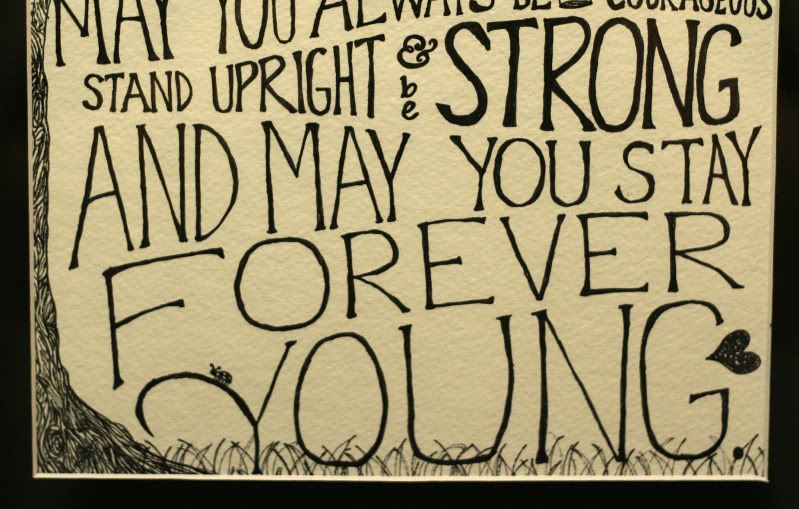 MAY YOU ALWAYS BE COURAGEOUS
STAND UPRIGHT & be STRONG
AND MAY YOU STAY
FOREVER
YOUNG.